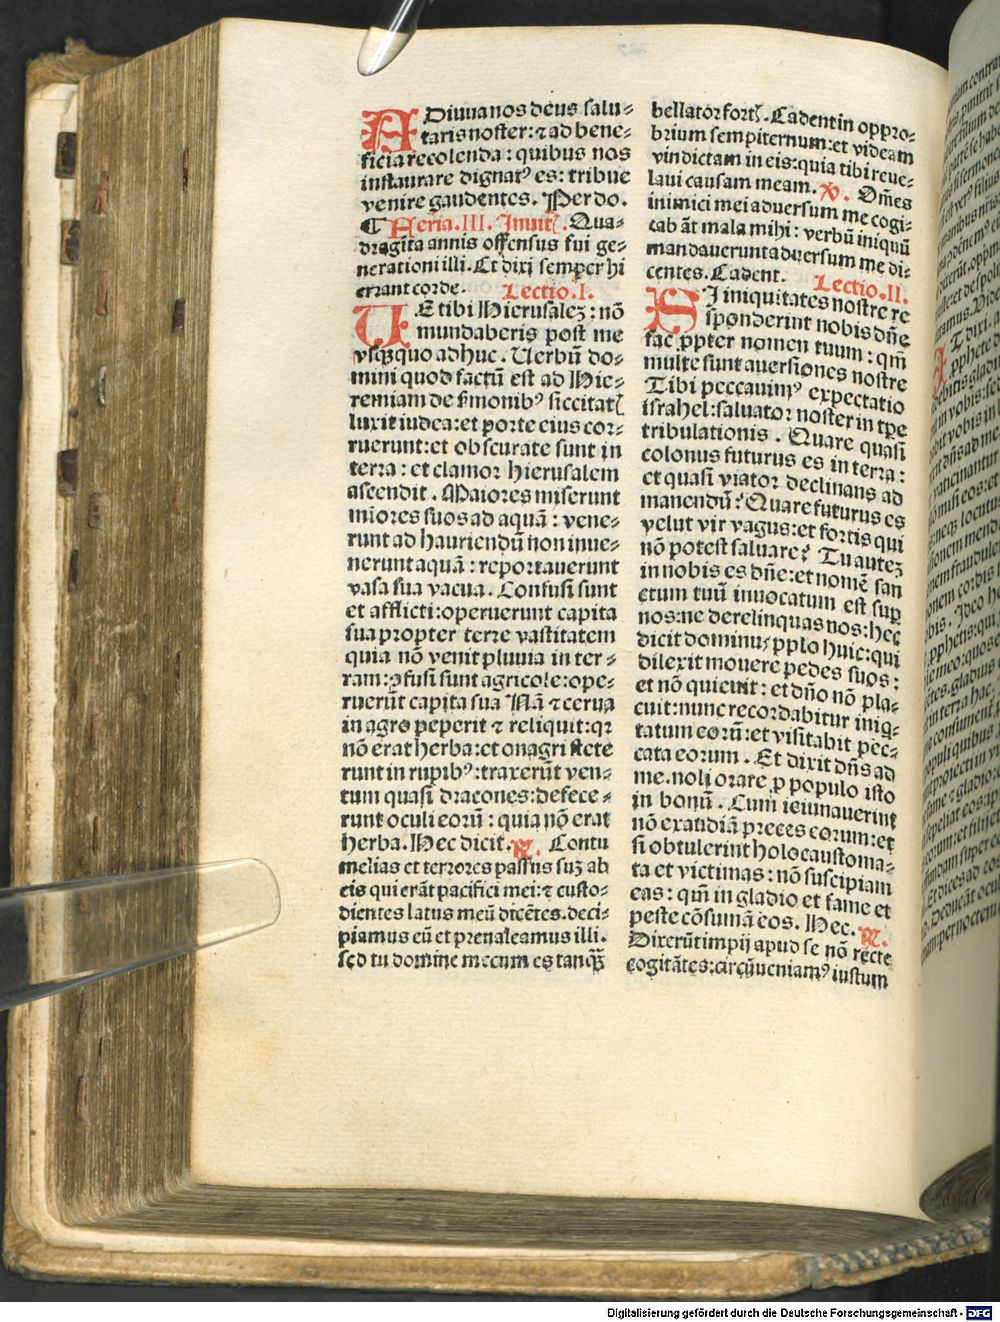 ADiuuanos deus salu⸗
taris noster: ⁊ ad bene⸗
ficia recolenda: quibus nos
instaurare dignatꝰ es: tribue
venire gaudentes. Per do.
¶ Feria. III. Inuit. Qua⸗
dragĩta annis offensus fui ge⸗
nerationi illi. Et dixi semper hi
errant corde. Lectio. I.
UE tibi Hierusalez: nõ
mundaberis post me
vsqꝫquo adhuc. Uerbũ do⸗
mini quod factũ est ad Hie⸗
remiam de s̃monibꝰ siccitatꝭ
luxit iudea: et porte eius cor⸗
ruerunt: et obscurate sunt in
terra: et clamor hierusalem
ascendit. Maiores miserunt
mĩores suos ad aquã: vene⸗
runt ad hauriendũ non inue⸗
nerunt aquã: reportauerunt
vasa sua vacua. Confusi sunt
et afflicti: operuerunt capita
sua propter terre vastitatem
quia nõ venit pluuia in ter⸗
ram: ꝯfusi sunt agricole: ope⸗
ruerũt capita sua Nã ⁊ cerua
in agro peperit ⁊ reliquit: qꝛ
nõ erat herba: et onagri stete
runt in rupibꝰ: traxerũt ven⸗
tum quasi dracones: defece⸗
runt oculi eorũ: quia nõ erat
herba. Hec dicit. R. Contu
melias et terrores passus suꝫ ab
eis qui erãt pacifici mei: ⁊ custo⸗
dientes latus meũ dicẽtes. deci⸗
piamus eũ et preualeamus illi.
sed tu domine mecum es tanqꝫ̃
bellator fortꝭ. Cadent in oppro⸗
brium sempiternum: et videam
vindictam in eis: quia tibi reue⸗
laui causam meam. V. Om̃es
inimici mei aduersum me cogi⸗
tabãt mala mihi: verbũ iniquũ
mandauerunt aduersum me di⸗
centes. Cadent. Lectio. II.
SI iniquitates nostre re
sponderint nobis dñe
fac ꝓpter nomen tuum: qm̃
multe sunt auersiones nostre
Tibi peccauimꝰ expectatio
israhel: saluator noster in tp̃e
tribulationis. Quare quasi
colonus futurus es in terra:
et quasi viator declinans ad
manendũ? Quare futurus es
velut vir vagus: et fortis qui
nõ potest saluare? Tu auteꝫ
in nobis es dñe: et nomẽ san
ctum tuũ inuocatum est sup̱
nos: ne derelinquas nos: hec
dicit dominus pplo huic: qui
dilexit mouere pedes suos:
et nõ quieuit: et dño nõ pla⸗
cuit: nunc recordabitur iniq⸗
tatum eorũ: et visitabit pec⸗
cata eorum. Et dixit dñs ad
me. noli orare p̱ populo isto
in bonũ. Cum ieiunauerint
nõ exaudiã preces eorum: et
si obtulerint holocaustoma⸗
ta et victimas: nõ suscipiam
eas: qm̃ in gladio et fame et
peste cõsumã eos. Hec. R.
Dixerũt impij apud se nõ recte
cogitãtes: circũueniamꝰ iustum
Digitalisierung gefördert durch die Deutsche Forschungsgemeinschaft - DFG